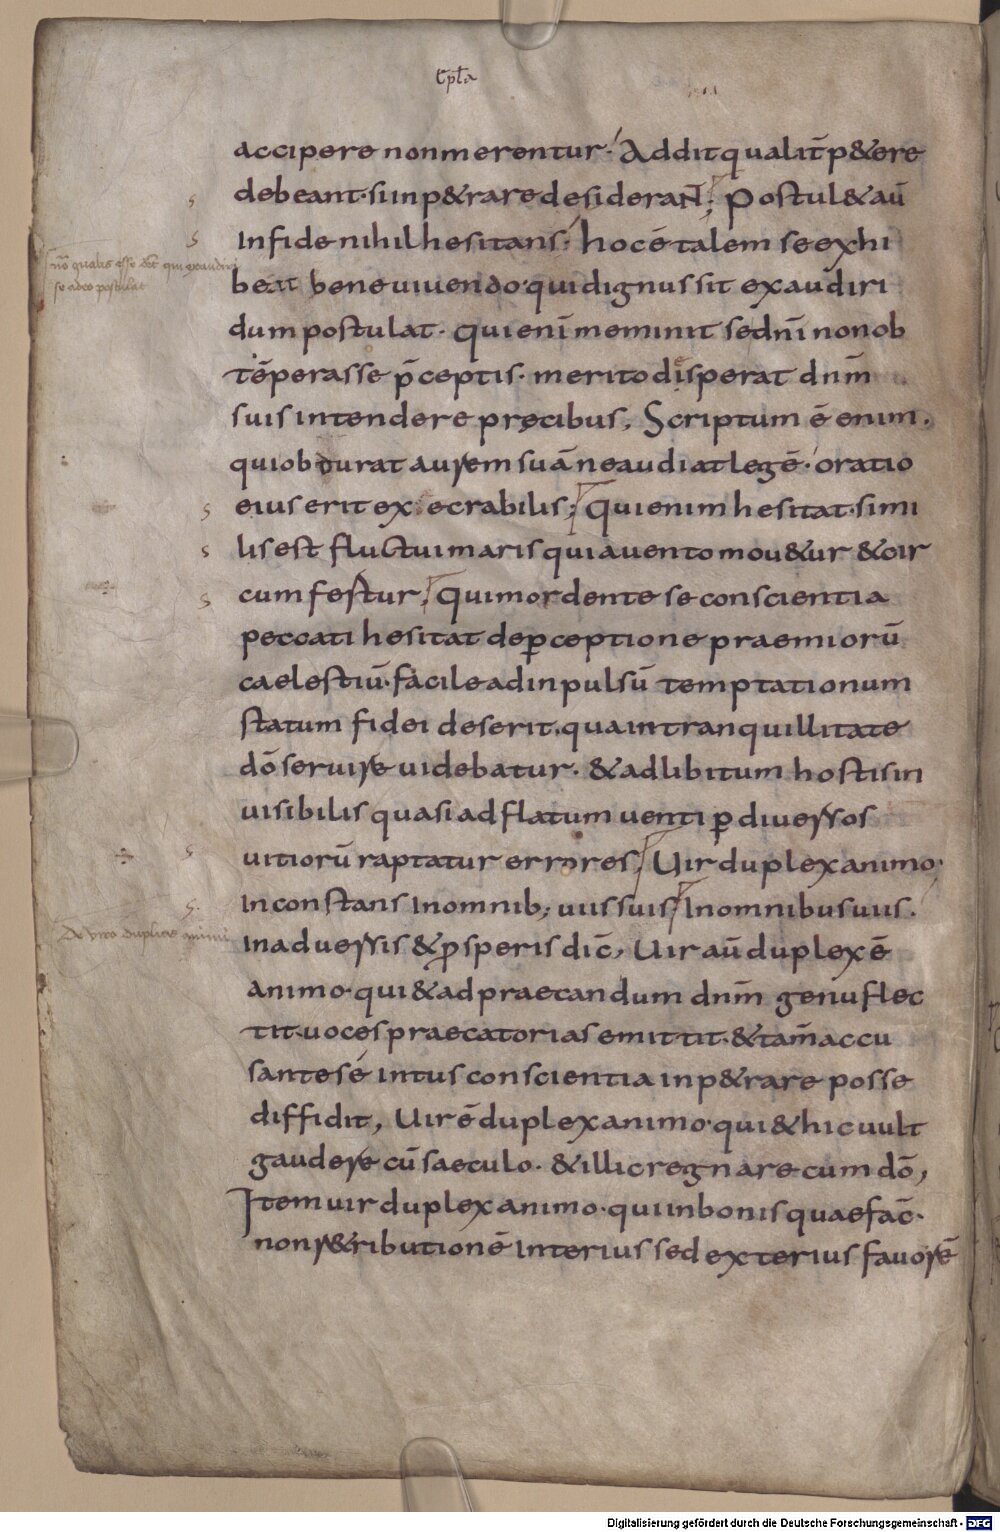 Epl̄a
accipere nonmerentur. Addit qualit̄ p&ere
debeant. si inp&rare desiderant; Postul& aū
Infide nihil hesitans; hoc ē talem se exhi
beat bene uiuendo. qui dignus sit exaudiri
dum postulat. qui enī meminit se dnī nonob
tēperasse p̄ceptis. merito disperat dnm̄
suis intendere pręcibus, Scriptum ē enim.
qui obdurat aurem suā ne audiat legē. oratio
eius erit execrabilis; qui enim hesitat. simi
lis est fluctui maris qui a uento mou&ur & cir
cumfertur; qui mordente se conscientia
peccati hesitat de ꝑceptione praemiorū
caelestiū. facile ad inpulsū temptationum
statum fidei deserit. qua in tranquillitate
dō seruire uidebatur. & ad libitum hostis in
uisibilis quasi ad flatum uenti ꝑ diuersos
uitiorū raptatur errores; Uir duplex animo
Inconstans Inomnib; uiis suis; Inomnibus uiis.
Inaduersis & ꝓsperis dic̄, Uir aū duplex ē
animo. qui & ad praecandum dnm̄ genu flec
tit. uoces praecatorias emittit. & tam̄ accu
sante sé intus conscientia inp&rare posse
diffidit, Uir ē duplex animo. qui & hic uult
gaudere cū saeculo. & illic regnare cum dō,
Item uir duplex animo. qui inbonis quae fac̄.
non r&ributionē Interius sed exterius fauorē
sn̄o qualis esse deb& qui exaudiri
se a deo postulat
De viro duplicis animi
Digitalisierung gefördert durch die Deutsche Forschungsgemeinschaft - DFG